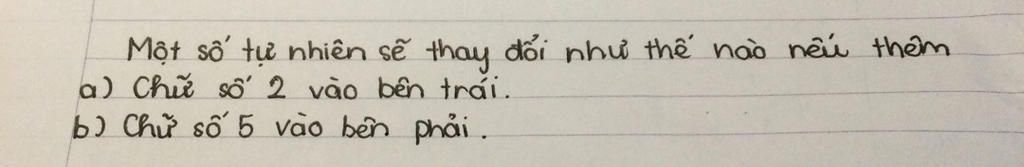 Một số tự nhiên sẽ thay đổi như thế nào nếu thêm
a) Chữ số 2 vào bên trái.
b) Chữ số 5 vào bên phải.